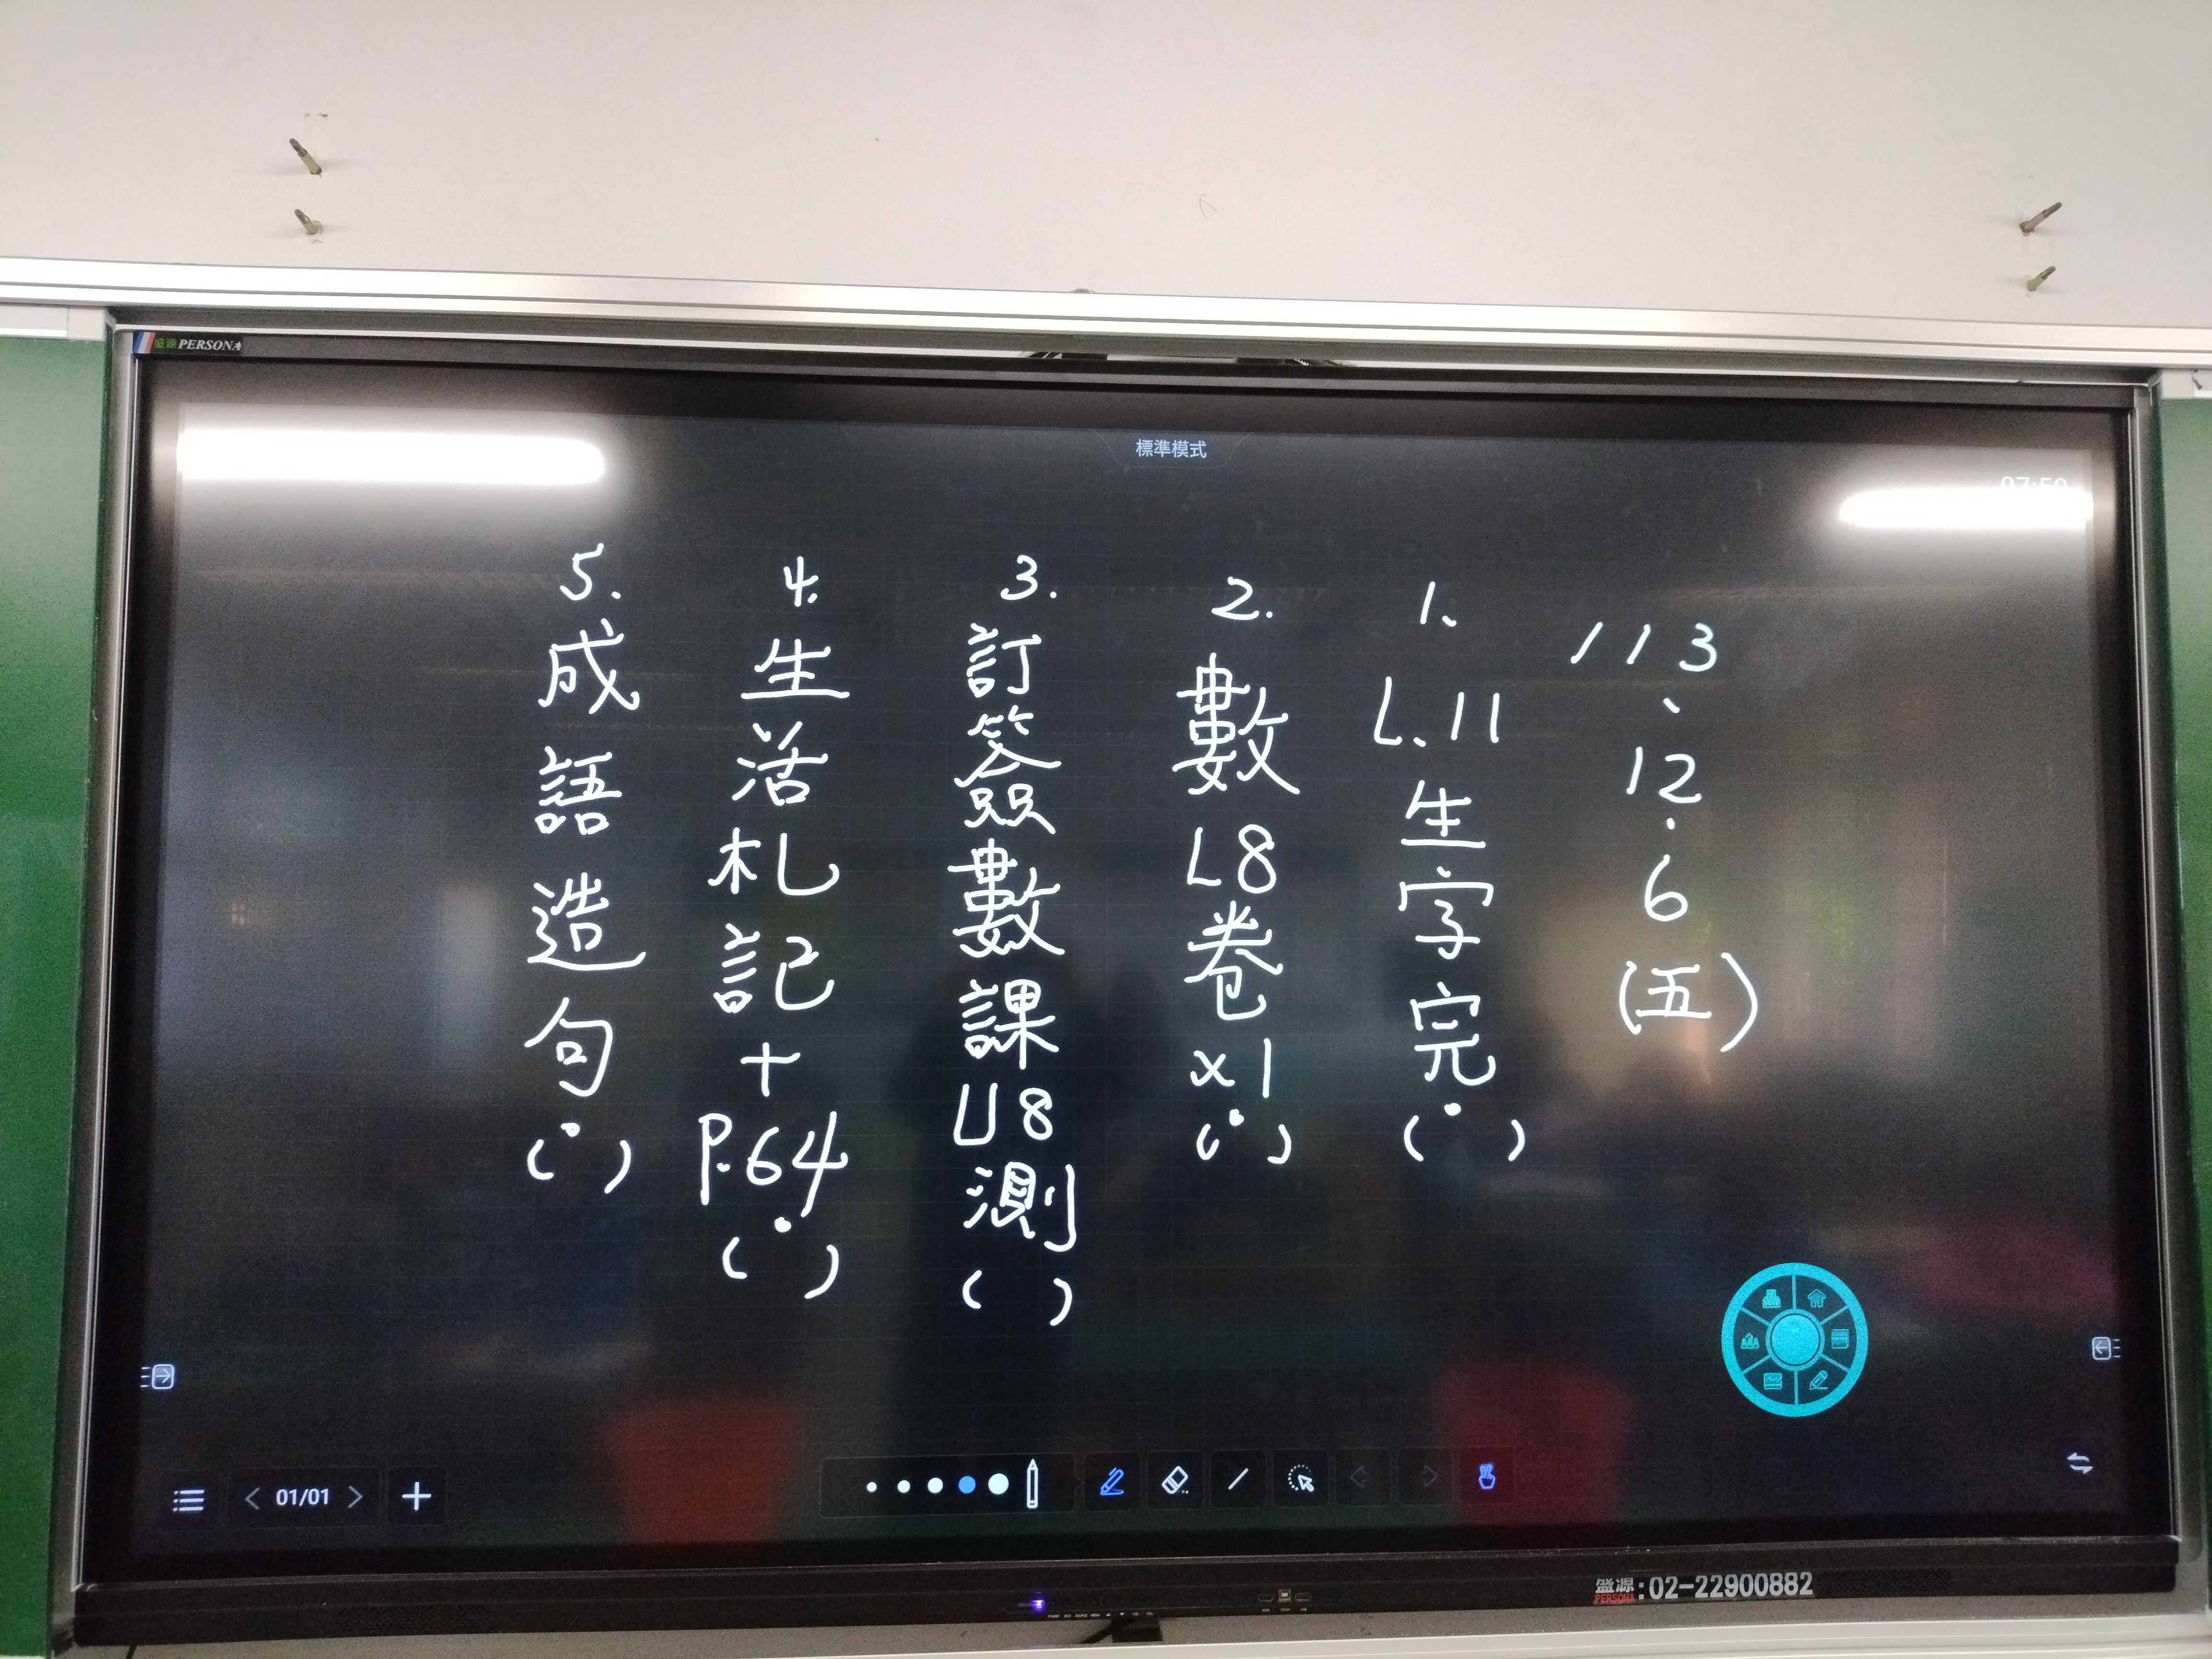 盛源 PERSONA
標準模式
113、12.6(五)
1、L、11生字完(  )
2.數L8卷x1(  )
3.訂簽數課U8測(  )
4.生活札記+P.64(  )
5.成語造句(  )
01/01
盛源 PERSONA:02-22900882